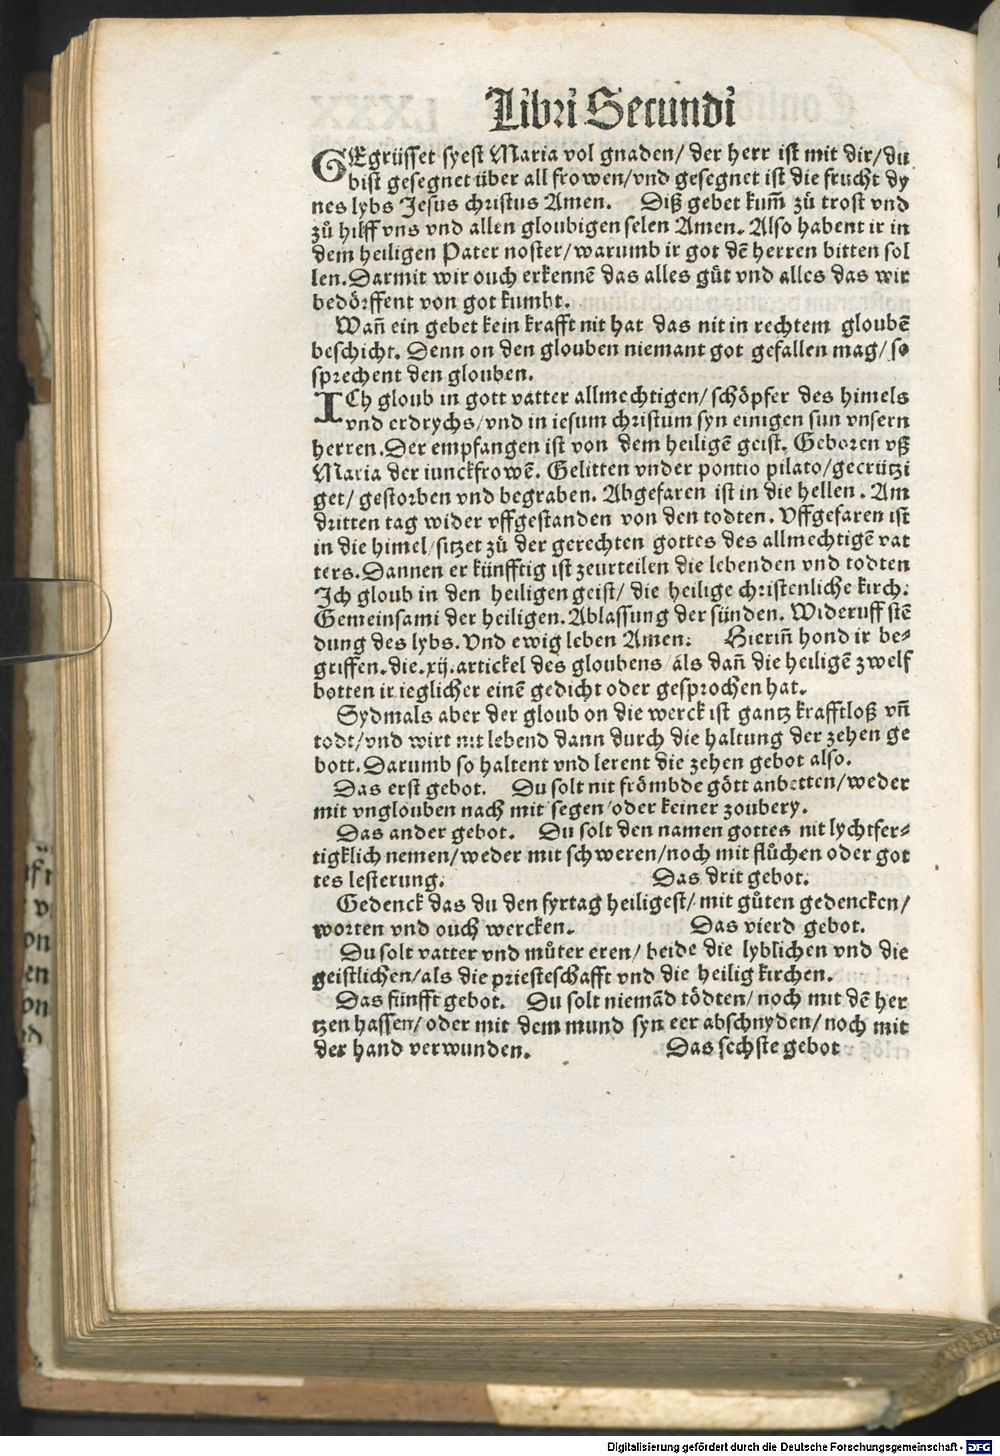 Libri Secundi
GEgrüsset syest Maria vol gnaden/ der herr ist mit dir/du
bist gesegnet über all frowen/vnd gesegnet ist die frucht dy
nes lybs Jesus christus Amen. Diß gebet kum̃ zů trost vnd
zů hilff vns vnd allen gloubigen selen Amen. Also habent ir in
dem heiligen Pater noster/warumb ir got dē herren bitten sol
len. Darmit wir ouch erkennē das alles gůt vnd alles das wir
bedörffent von got kumbt.
Wañ ein gebet kein krafft nit hat das nit in rechtem gloubē
beschicht. Denn on den glouben niemant got gefallen mag/so
sprechent den glouben.
ICh gloub in gott vatter allmechtigen/ schöpfer des himels
vnd erdrychs/vnd in iesum christum syn einigen sun vnsern
herren. Der empfangen ist von dem heiligē geist. Geboren vß
Maria der iunckfrowē. Gelitten vnder pontio pilato/gecrützi
get/ gestorben vnd begraben. Abgefaren ist in die hellen. Am
dritten tag wider vffgestanden von den todten. Vffgefaren ist
in die himel/sitzet zů der gerechten gottes des allmechtigē vat
ters. Dannen er künfftig ist zeurteilen die lebenden vnd todten
Ich gloub in den heiligen geist/ die heilige christenliche kirch.
Gemeinsami der heiligen. Ablassung der sünden. Wideruff stē
dung des lybs. Vnd ewig leben Amen. Hieriñ hond ir be-
griffen.die.xij.artickel des gloubens/als dañ die heiligē zwelf
botten ir ieglicher einē gedicht oder gesprochen hat.
Sydmals aber der gloub on die werck ist gantz krafftloß vñ
todt/vnd wirt nit lebend dann durch die haltung der zehen ge
bott. Darumb so haltent vnd lerent die zehen gebot also.
Das erst gebot. Du solt nit frömbde gött anbetten/weder
mit vnglouben nach mit segen/oder keiner zoubery.
Das ander gebot. Du solt den namen gottes nit lychtfer-
tigklich nemen/weder mit schweren/noch mit flůchen oder got
tes lesterung. Das drit gebot.
Gedenck das du den fyrtag heiligest/mit gůten gedencken/
worten vnd ouch wercken. Das vierd gebot.
Du solt vatter vnd můter eren/ beide die lyblichen vnd die
geistlichen/als die priesteschafft vnd die heilig kirchen.
Das fünfft gebot. Du solt niemād tödten/ noch mit dē her
tzen hassen/oder mit dem mund syn eer abschnyden/noch mit
der hand verwunden. Das sechste gebot
Digitalisierung gefördert durch die Deutsche Forschungsgemeinschaft - DFG